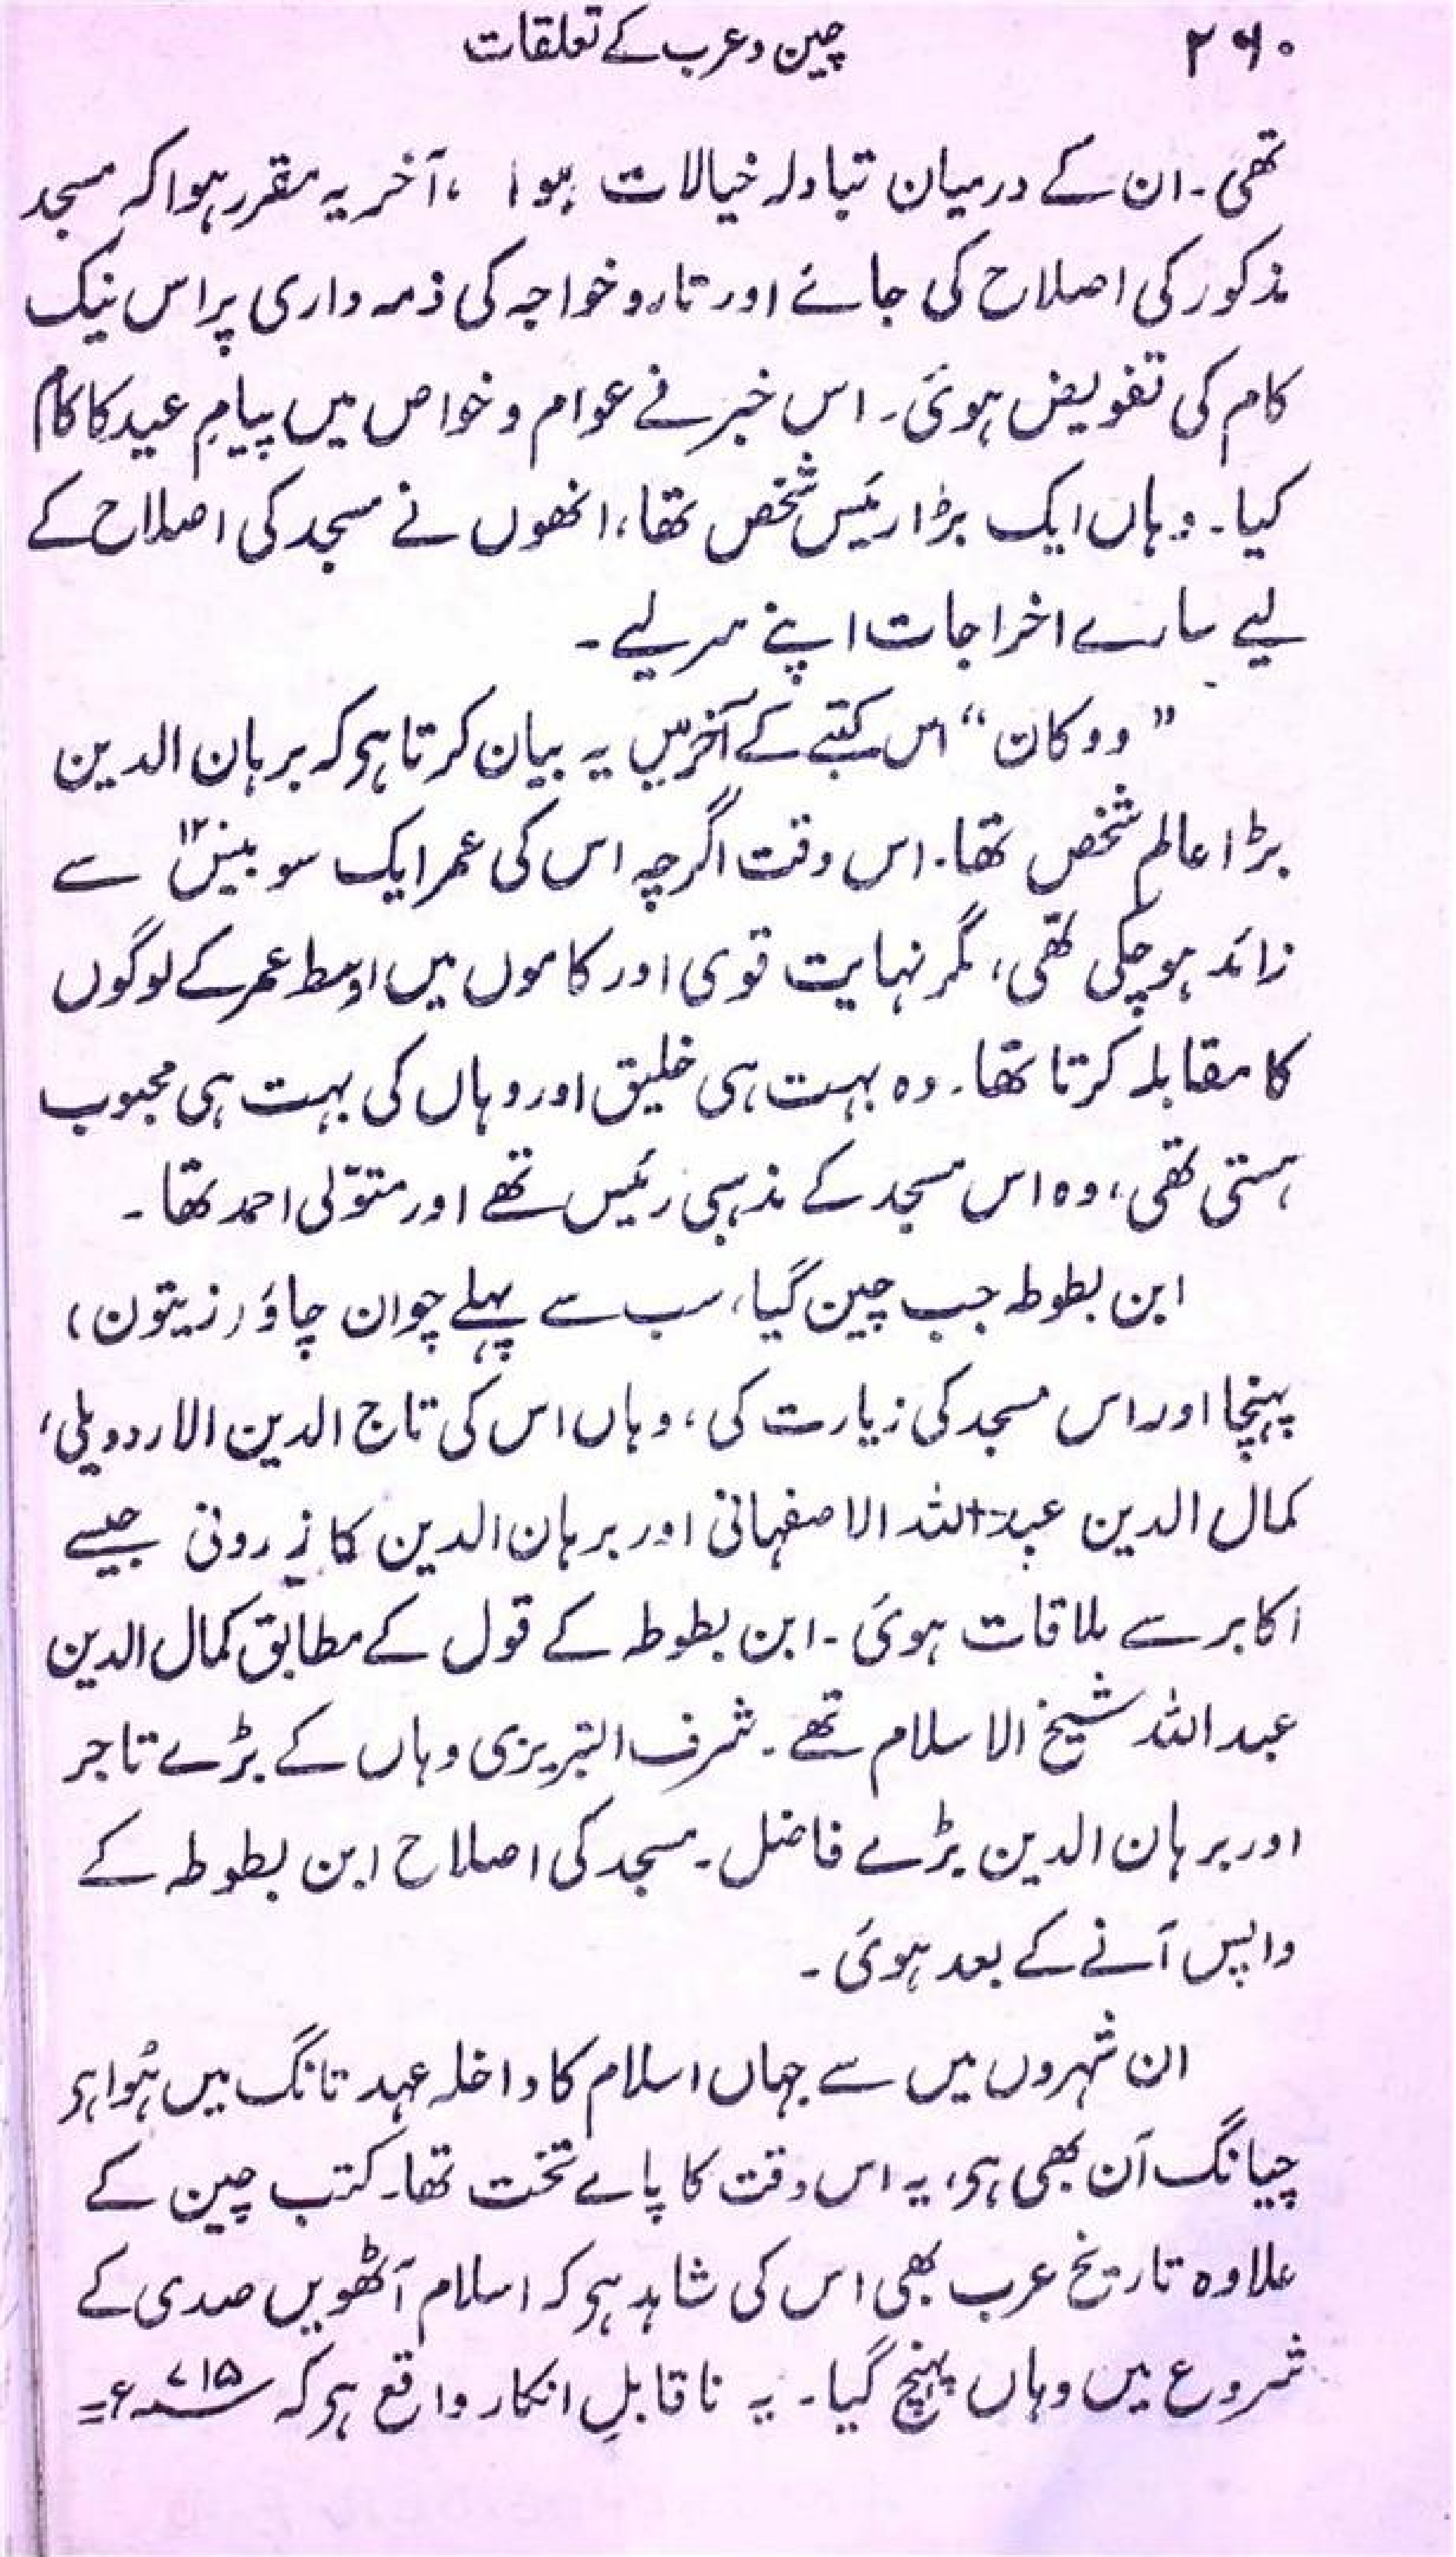 ۲۶۰ چین و عرب کے تعلقات
تھی۔ ان کے درمیان تبادلہ خیالات ہوا ، آخر یہ مقرر ہوا کہ مسجد
مذکور کی اصلاح کی جائے اور تارو خواجہ کی ذمہ داری پر اس نیک
کام کی تفویض ہوئی۔ اس خبر نے عوام و خواص میں پیامِ عید کا کام
کیا۔ وہاں ایک بڑا رئیس شخص تھا، انھوں نے مسجد کی اصلاح کے
لیے سارے اخراجات اپنے سر لیے ۔
” ووکان “ اس کتبے کے آخر میں یہ بیان کرتا ہو کہ برہان الدین
بڑا عالم شخص تھا۔ اس وقت اگرچہ اس کی عمر ایک سو بیس ۱۲ سے
زائد ہو چکی تھی، مگر نہایت قوی اور کاموں میں اوسط عمر کے لوگوں
کا مقابلہ کرتا تھا۔ وہ بہت ہی خلیق اور وہاں کی بہت ہی محبوب
ہستی تھی، وہ اس مسجد کے مذہبی رئیس تھے اور متوّلی احمد تھا ۔
ابن بطوطہ جب چین گیا، سب سے پہلے چوان چاؤ (زیتون)
پہنچا اور اس مسجد کی زیارت کی، وہاں اس کی تاج الدین الاردویلی،
کمال الدین عبداللہ الاصفہانی اور برہان الدین کازرونی جیسے
اکابر سے ملاقات ہوئی ۔ ابن بطوطہ کے قول کے مطابق کمال الدین
عبداللہ شیخ الاسلام تھے ۔ شرف التبریزی وہاں کے بڑے تاجر
اور برہان الدین بڑے فاضل ۔ مسجد کی اصلاح ابن بطوطہ کے
واپس آنے کے بعد ہوئی ۔
ان شہروں میں سے جہاں اسلام کا داخلہ عہد تانگ میں ہُوا ہو
چیانگ آن بھی ہو، یہ اس وقت کا پاے تخت تھا۔ کتب چین کے
علاوہ تاریخ عرب بھی اس کی شاہد ہو کہ اسلام آٹھویں صدی کے
شروع میں وہاں پہنچ گیا ۔ یہ ناقابلِ انکار واقع ہو کہ ۷۱۵ء =